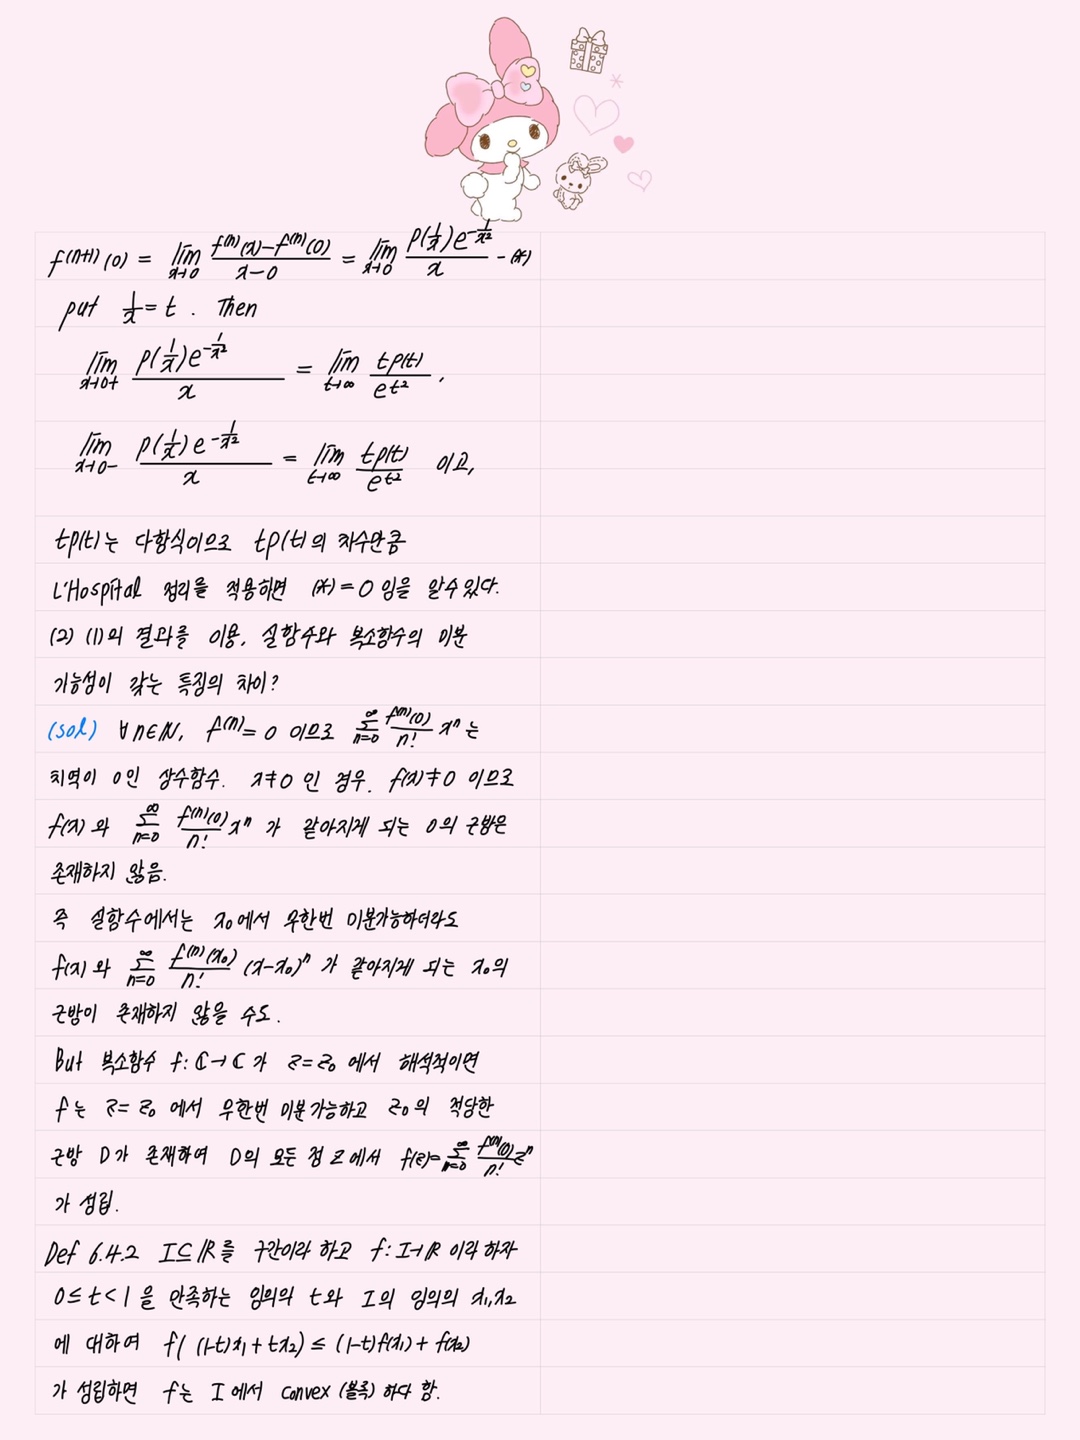 f⁽ⁿ⁺¹⁾(0) = lim_{x→0} (f⁽ⁿ⁾(x)-f⁽ⁿ⁾(0))/(x-0) = lim_{x→0} P(1/x)e^{-1/x²}/x - (*)
put 1/x = t . Then
lim_{x→0+} P(1/x)e^{-1/x²}/x = lim_{t→∞} tP(t)/e^{t²} ,
lim_{x→0-} P(1/x)e^{-1/x²}/x = lim_{t→∞} tP(t)/e^{t²} 이고,
tP(t)는 다항식이므로 tP(t)의 차수만큼
L'Hospital 정리를 적용하면 (*)=0 임을 알수있다.
(2) (1)의 결과를 이용, 실함수와 복소함수의 미분
가능성이 갖는 특징의 차이?
(sol) ∀n∈ℕ, f⁽ⁿ⁾=0 이므로 Σ_{n=0}^{∞} f⁽ⁿ⁾(0)/n! xⁿ 는
치역이 0인 상수함수. x≠0 인 경우. f(x)≠0 이므로
f(x) 와 Σ_{n=0}^{∞} f⁽ⁿ⁾(0)/n! xⁿ 가 같아지게 되는 0의 근방은
존재하지 않음.
즉 실함수에서는 x₀에서 무한번 미분가능하더라도
f(x) 와 Σ_{n=0}^{∞} f⁽ⁿ⁾(x₀)/n! (x-x₀)ⁿ 가 같아지게 되는 x₀의
근방이 존재하지 않을 수도.
But 복소함수 f: ℂ→ℂ 가 z=z₀ 에서 해석적이면
f는 z=z₀ 에서 무한번 미분가능하고 z₀의 적당한
근방 D가 존재하여 D의 모든 점 z에서 f(z)=Σ_{n=0}^{∞} f⁽ⁿ⁾(0)/n! zⁿ
가 성립.
Def 6.4.2 I⊆ℝ를 구간이라 하고 f: I→ℝ 이라 하자
0≤t<1 을 만족하는 임의의 t와 I의 임의의 x₁,x₂
에 대하여 f( (1-t)x₁+tx₂) ≤ (1-t)f(x₁)+ f(x₂)
가 성립하면 f는 I에서 convex (볼록) 하다 함.